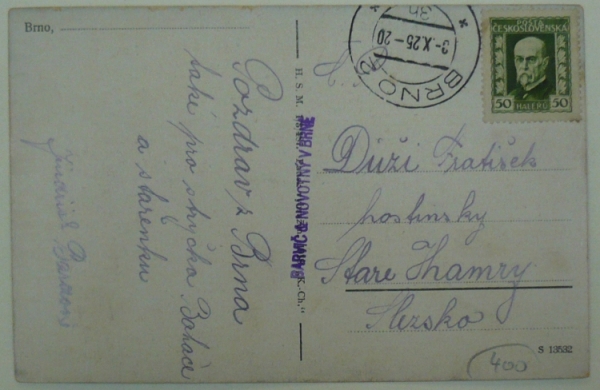 Brno,
Pozdrav z Brna
také pro strýčka Boháče
a stařenku
H. S. M.
BARVIČ & NOVOTNÝ V BRNĚ
K.-Ch."
BRNO
3-X.25-20
POŠTA
ČESKOSLOVENSKÁ
50 HALÉŘŮ 50
Duži Fratišek
hostinsky
Stare Hamry
Slezsko
S 13532
400